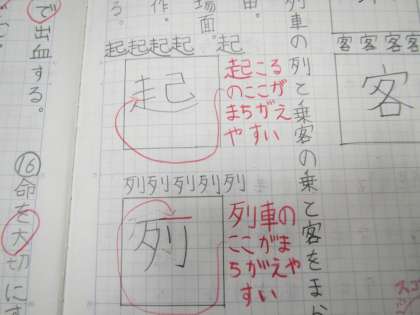 客客客客
客
列車の列と乗客の乗て客をま
起起起起 起
起
起こる
のここが
まちがえ
やすい
列列列列列
列
列車の
ここがま
ちがえや
すい
由。
場面。
作。
る。
で出血する。
⑯命を大切にす